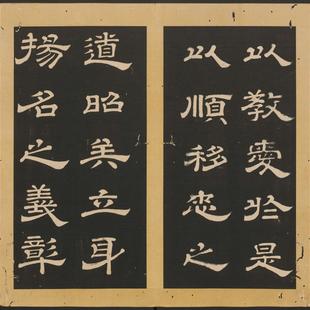 以教愛於是
以順移忠之
道昭矣立身
揚名之義彰